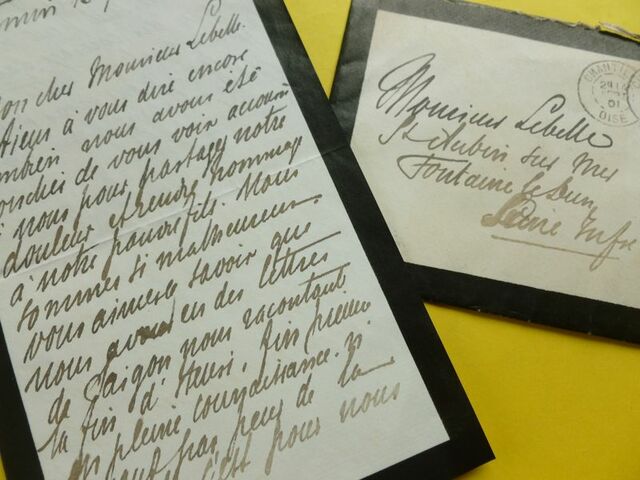 mon cher Monsieur Lebelle.
tiens à vous dire encore
combien nous avons été
touchés de vous voir accourir
à nous pour partager notre
douleur et rendre hommage
à notre pauvre fils. Nous
sommes si malheureux.
vous aimerez savoir que
nous avons eu des lettres
de Saigon nous racontant
la fin d'Henri. fin
en pleine connaissance.
pas peur de la
c'est pour nous
Monsieur Lebelle
St Aubin sur Mer
Fontaine le Dun
Seine Infre
CHANTILLY
01
OISE